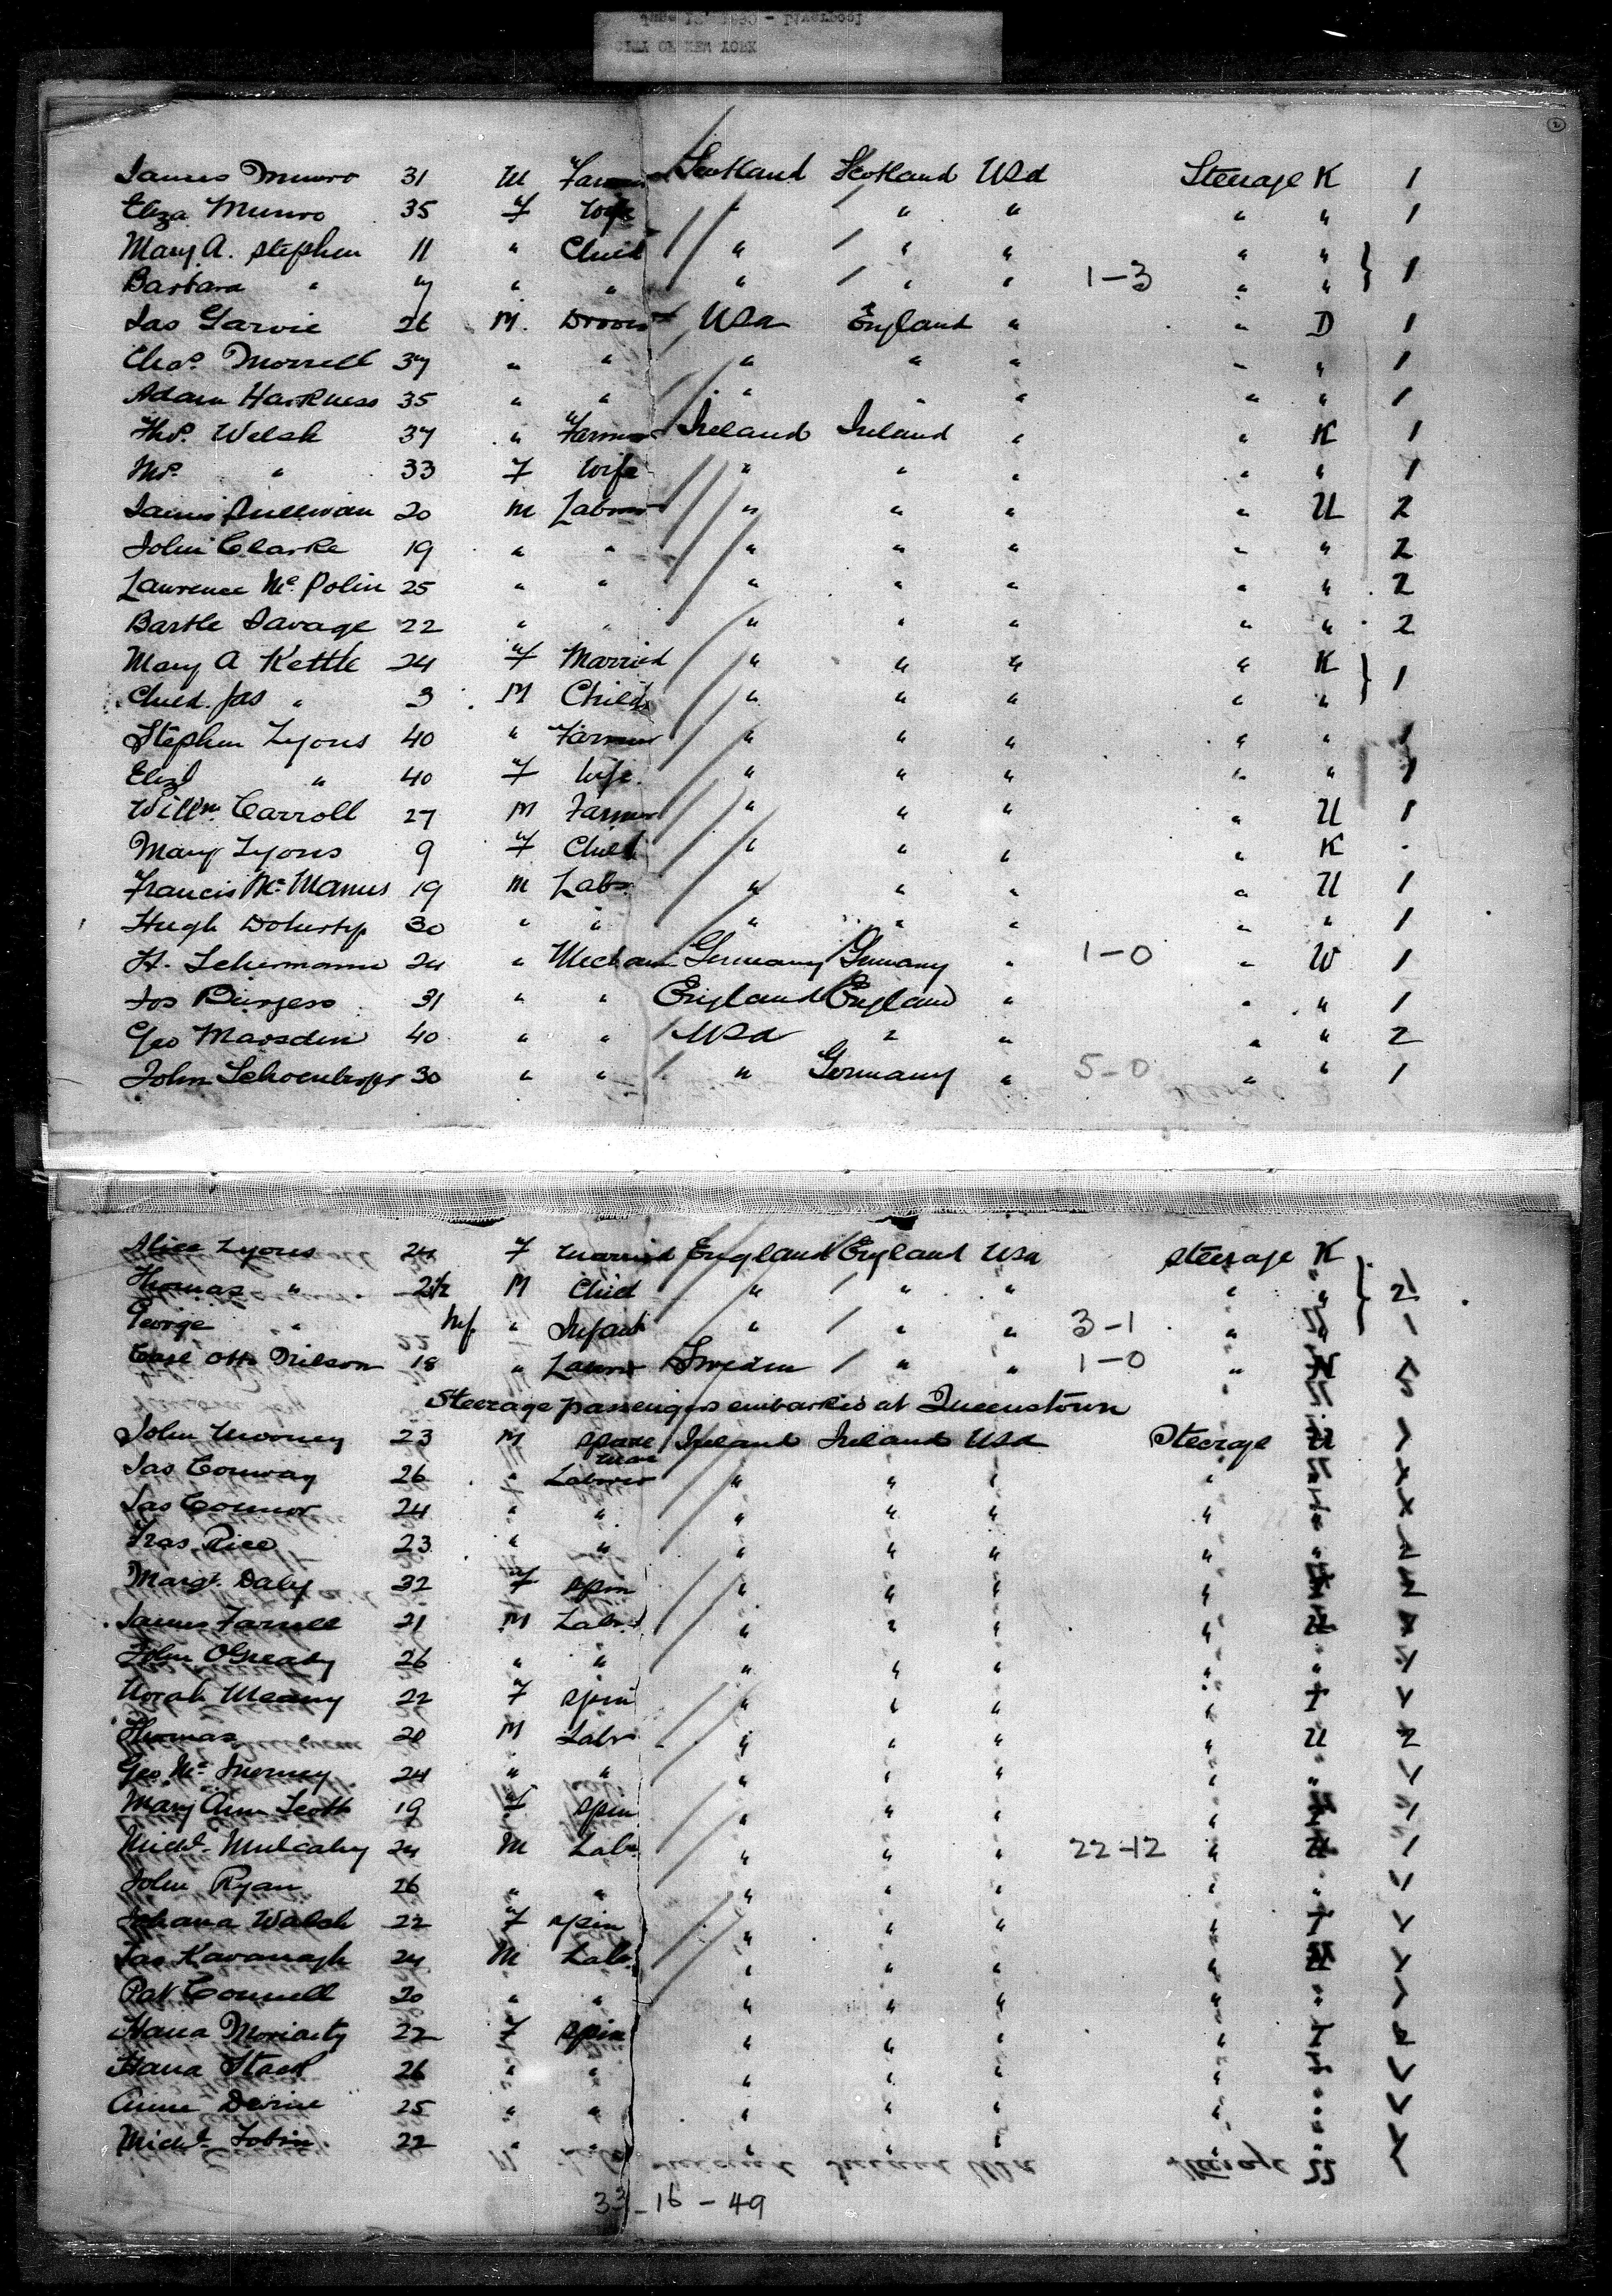 CITY OF NEW YORK
James Munro 31 M Farmer Scotland Scotland USA Steerage K 1
Eliza Munro 35 F Wife " " " " " 1
Mary A. Stephen 11 " Child " " " " " 1
Barbara " 7 " " " " " 1-3 " "
Jas Garvie 26 M. Drover USA England " " D 1
Chas. Morrell 37 " " " " " " " 1
Adam Harkness 35 " " " " " " " 1
Thos. Welsh 37 " Farmer Ireland Ireland " " K 1
Mrs. " 33 F Wife " " " " " 1
James Sullivan 20 M Labour " " " " U 2
John Clarke 19 " " " " " " " 2
Lawrence Mc Polin 25 " " " " " " " 2
Bartle Savage 22 " " " " " " " 2
Mary A Kettle 24 F Married " " " " K 1
Child Jas " 3 M Child " " " " "
Stephen Lyons 40 " Farmer " " " " " 1
Eliz " 40 F Wife " " " " " 1
Willm Carroll 27 M Farmer " " " " U 1
Mary Lyons 9 F Child " " " " K
Francis Mc Manus 19 M Labr " " " " U 1
Hugh Doherty 30 " " " " " " " 1
H. 24 " Mechan Germany Germany " 1-0 " W 1
Jos Burgess 31 " " England England " " " 1
Geo Marsden 40 " " USA " " " " 2
John 30 " " " Germany " 5-0 " " 1
Alice Lyons 24 F Married England England USA Steerage K
Thomas " 2½ M Child " " " " " 2
George " Inf. " Infant " " " 3-1 " " 1
Carl Otto Nilson 18 " Labour Sweden " " 1-0 "
Steerage passengers embarked at Queenstown
John Mooney 23 M Spare man Ireland Ireland USA Steerage U
Jas Conway 26 " Labourer " " " "
Jas Connor 24 " " " " " "
Fras. Rice 23 " " " " " "
Margt. Daly 32 F Spin " " " "
James Farrell 21 M Labr. " " " " U
John OGrady 26 " " " " " " "
Norah Meany 22 F Spin " " " "
Thomas " 20 M Labr " " " " U 2
Geo Mc Inerney 24 " " " " " " "
Mary Ann Scott 19 F Spin " " " " 1
Michl. Mulcahy 24 M Labr " " " 22-12 " U 1
John Ryan 26 " " " " " " "
Johana Walsh 22 F Spin " " " "
Jas Kavanagh 24 M Labr. " " " " U
Pat Connell 20 " " " " " " "
Hana Moriarty 22 F Spin " " " "
Hana Stack 26 " " " " " "
Annie Devine 25 " " " " " " "
Michl. Tobin 22 " " " " " "
33-16-49